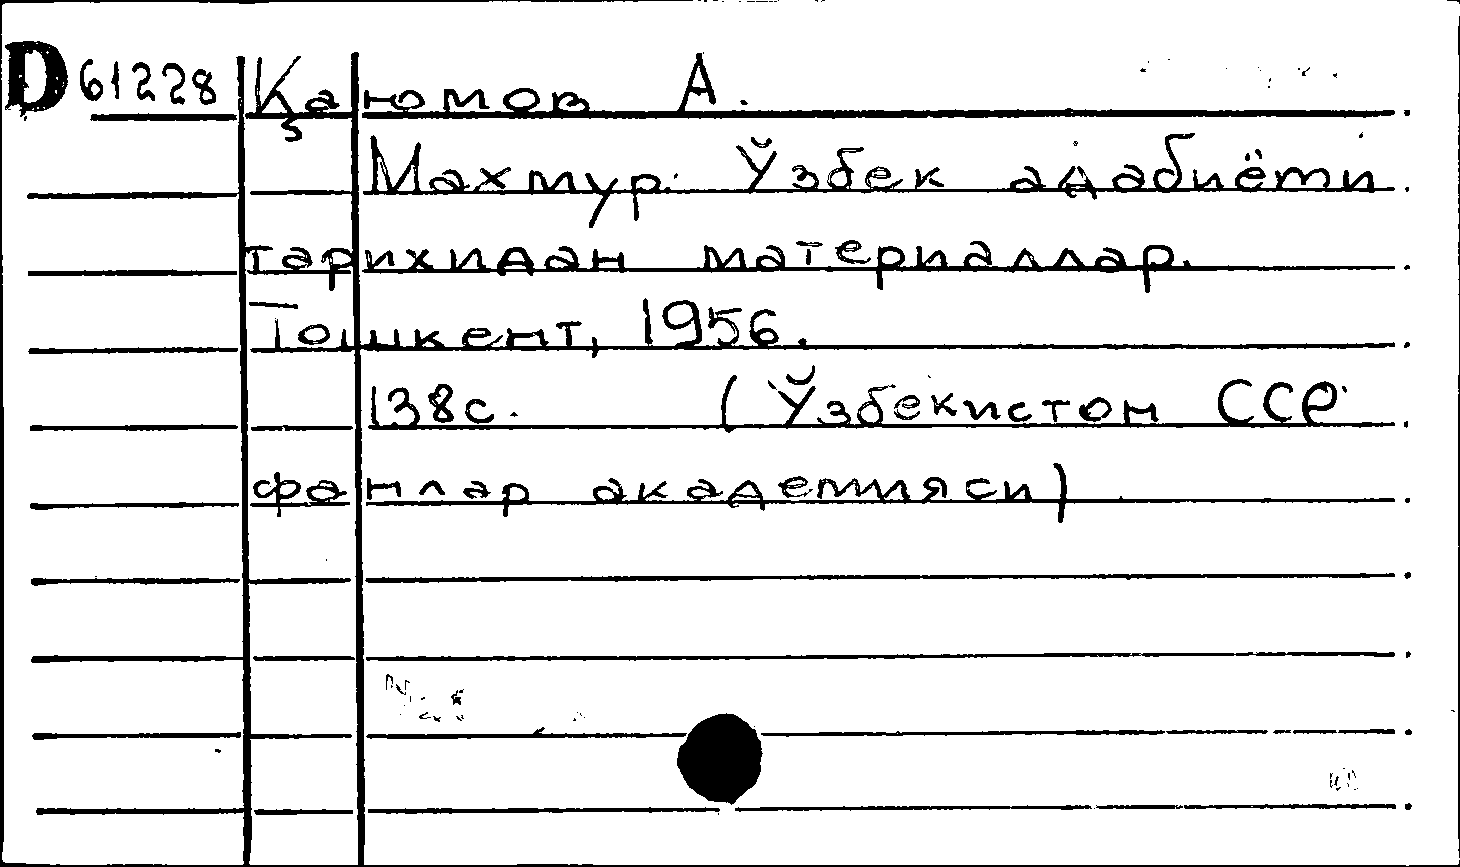 D 61228 Қаюмов А.
Махмур. Ўзбек адабиёти
тарихидан материаллар.
Тошкент, 1956.
138с. (Ўзбекистон ССР
фанлар академияси)